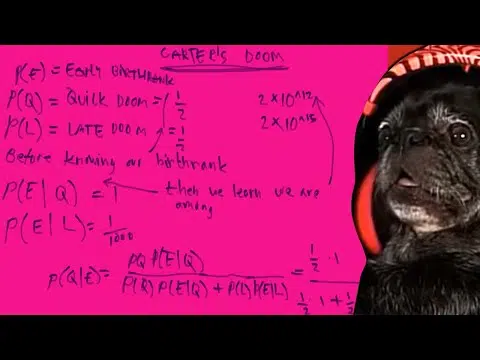 CARTER'S DOOM
P(E) = EARLY BIRTHRANK
P(Q) = QUICK DOOM = 1/2
P(L) = LATE DOOM = 1/2
2 × 10^12
2 × 10^15
Before knowing our birthrank
P(E|Q) = 1
then we learn we are among
P(E|L) = 1/1000
P(Q|E) = PQ P(E|Q) / P(Q) P(E|Q) + P(L) P(E|L) = 1/2 · 1 / 1/2 · 1 + 1/2